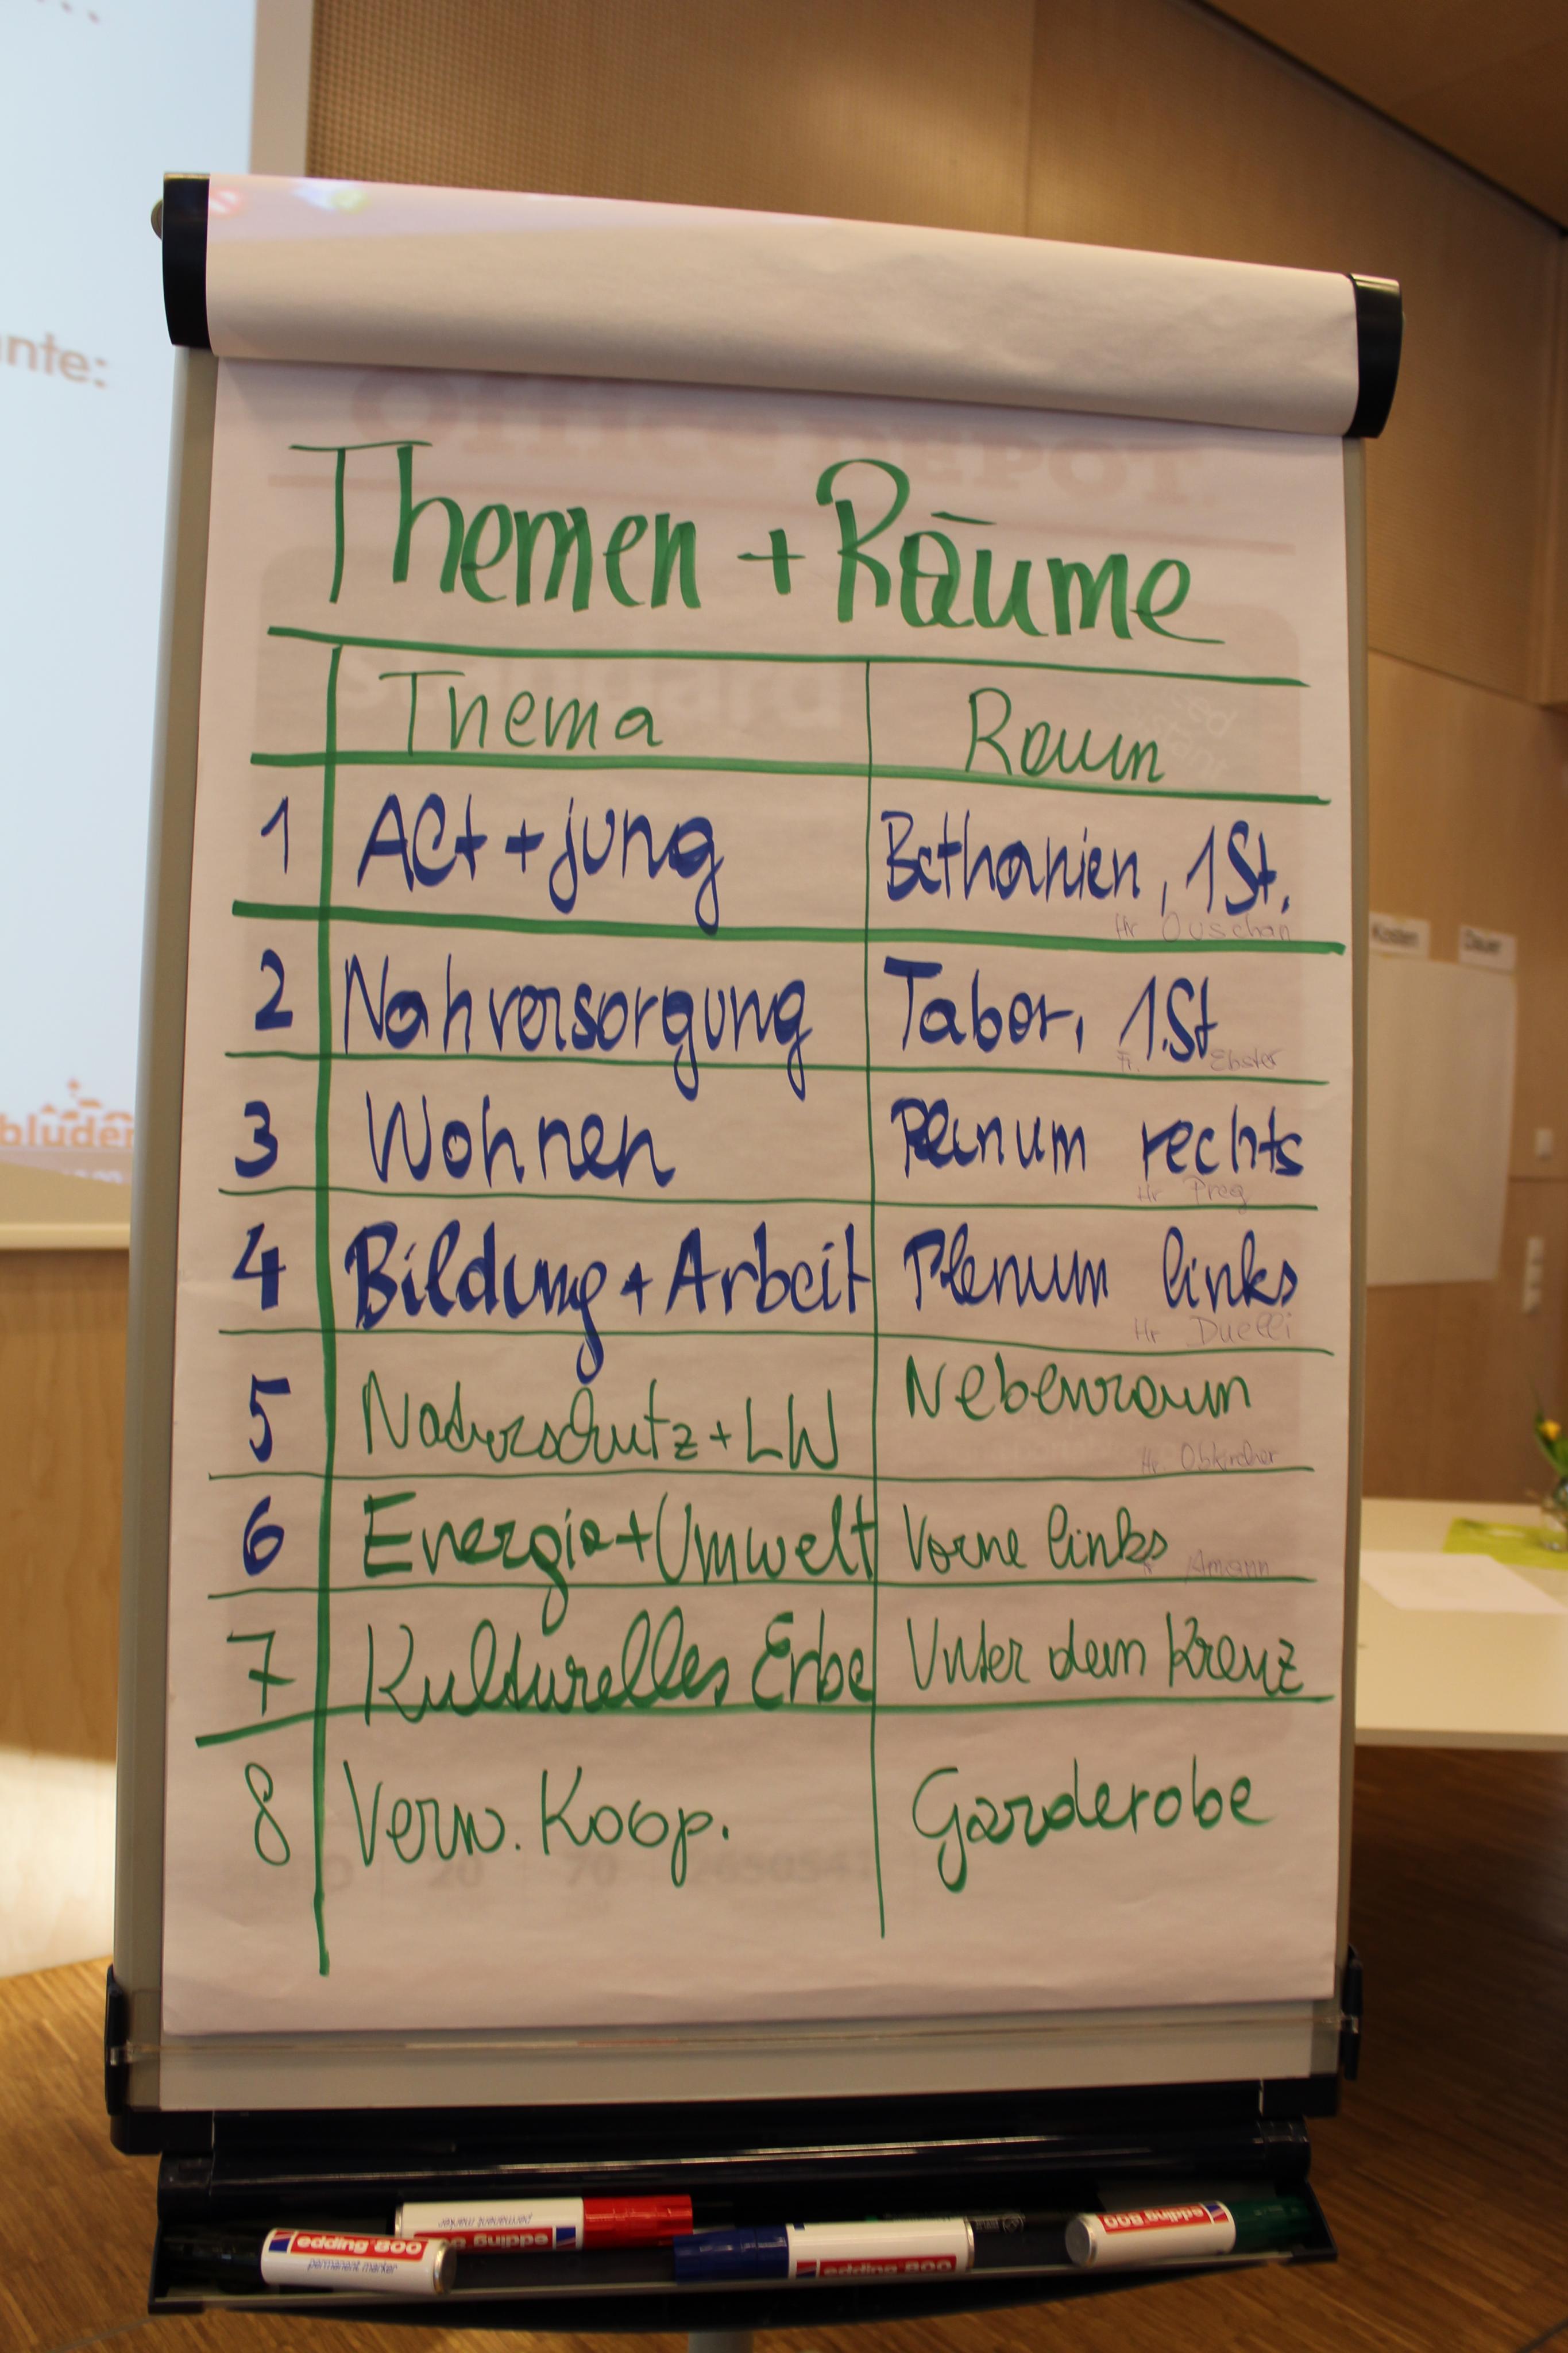 nte:
Office DEPOT
Themen + Räume
standard
Thema Raum
1 Alt + jung Bethanien, 1St.
Hr Ouschan
2 Nahversorgung Tabor, 1.St
Fr. Ebster
3 Wohnen Plenum rechts
Hr
4 Bildung + Arbeit Plenum links
Hr Duelli
5 Naturschutz + LW Nebenraum
Hr. Obkircher
6 Energie + Umwelt Vorne links
Amann
7 Kulturelles Erbe Unter dem Kreuz
8 Verw. Koop. Garderobe
20 70
Kosten
Dauer
bluden
edding 800
permanent marker
edding 800
permanent marker
edding 800
edding 800